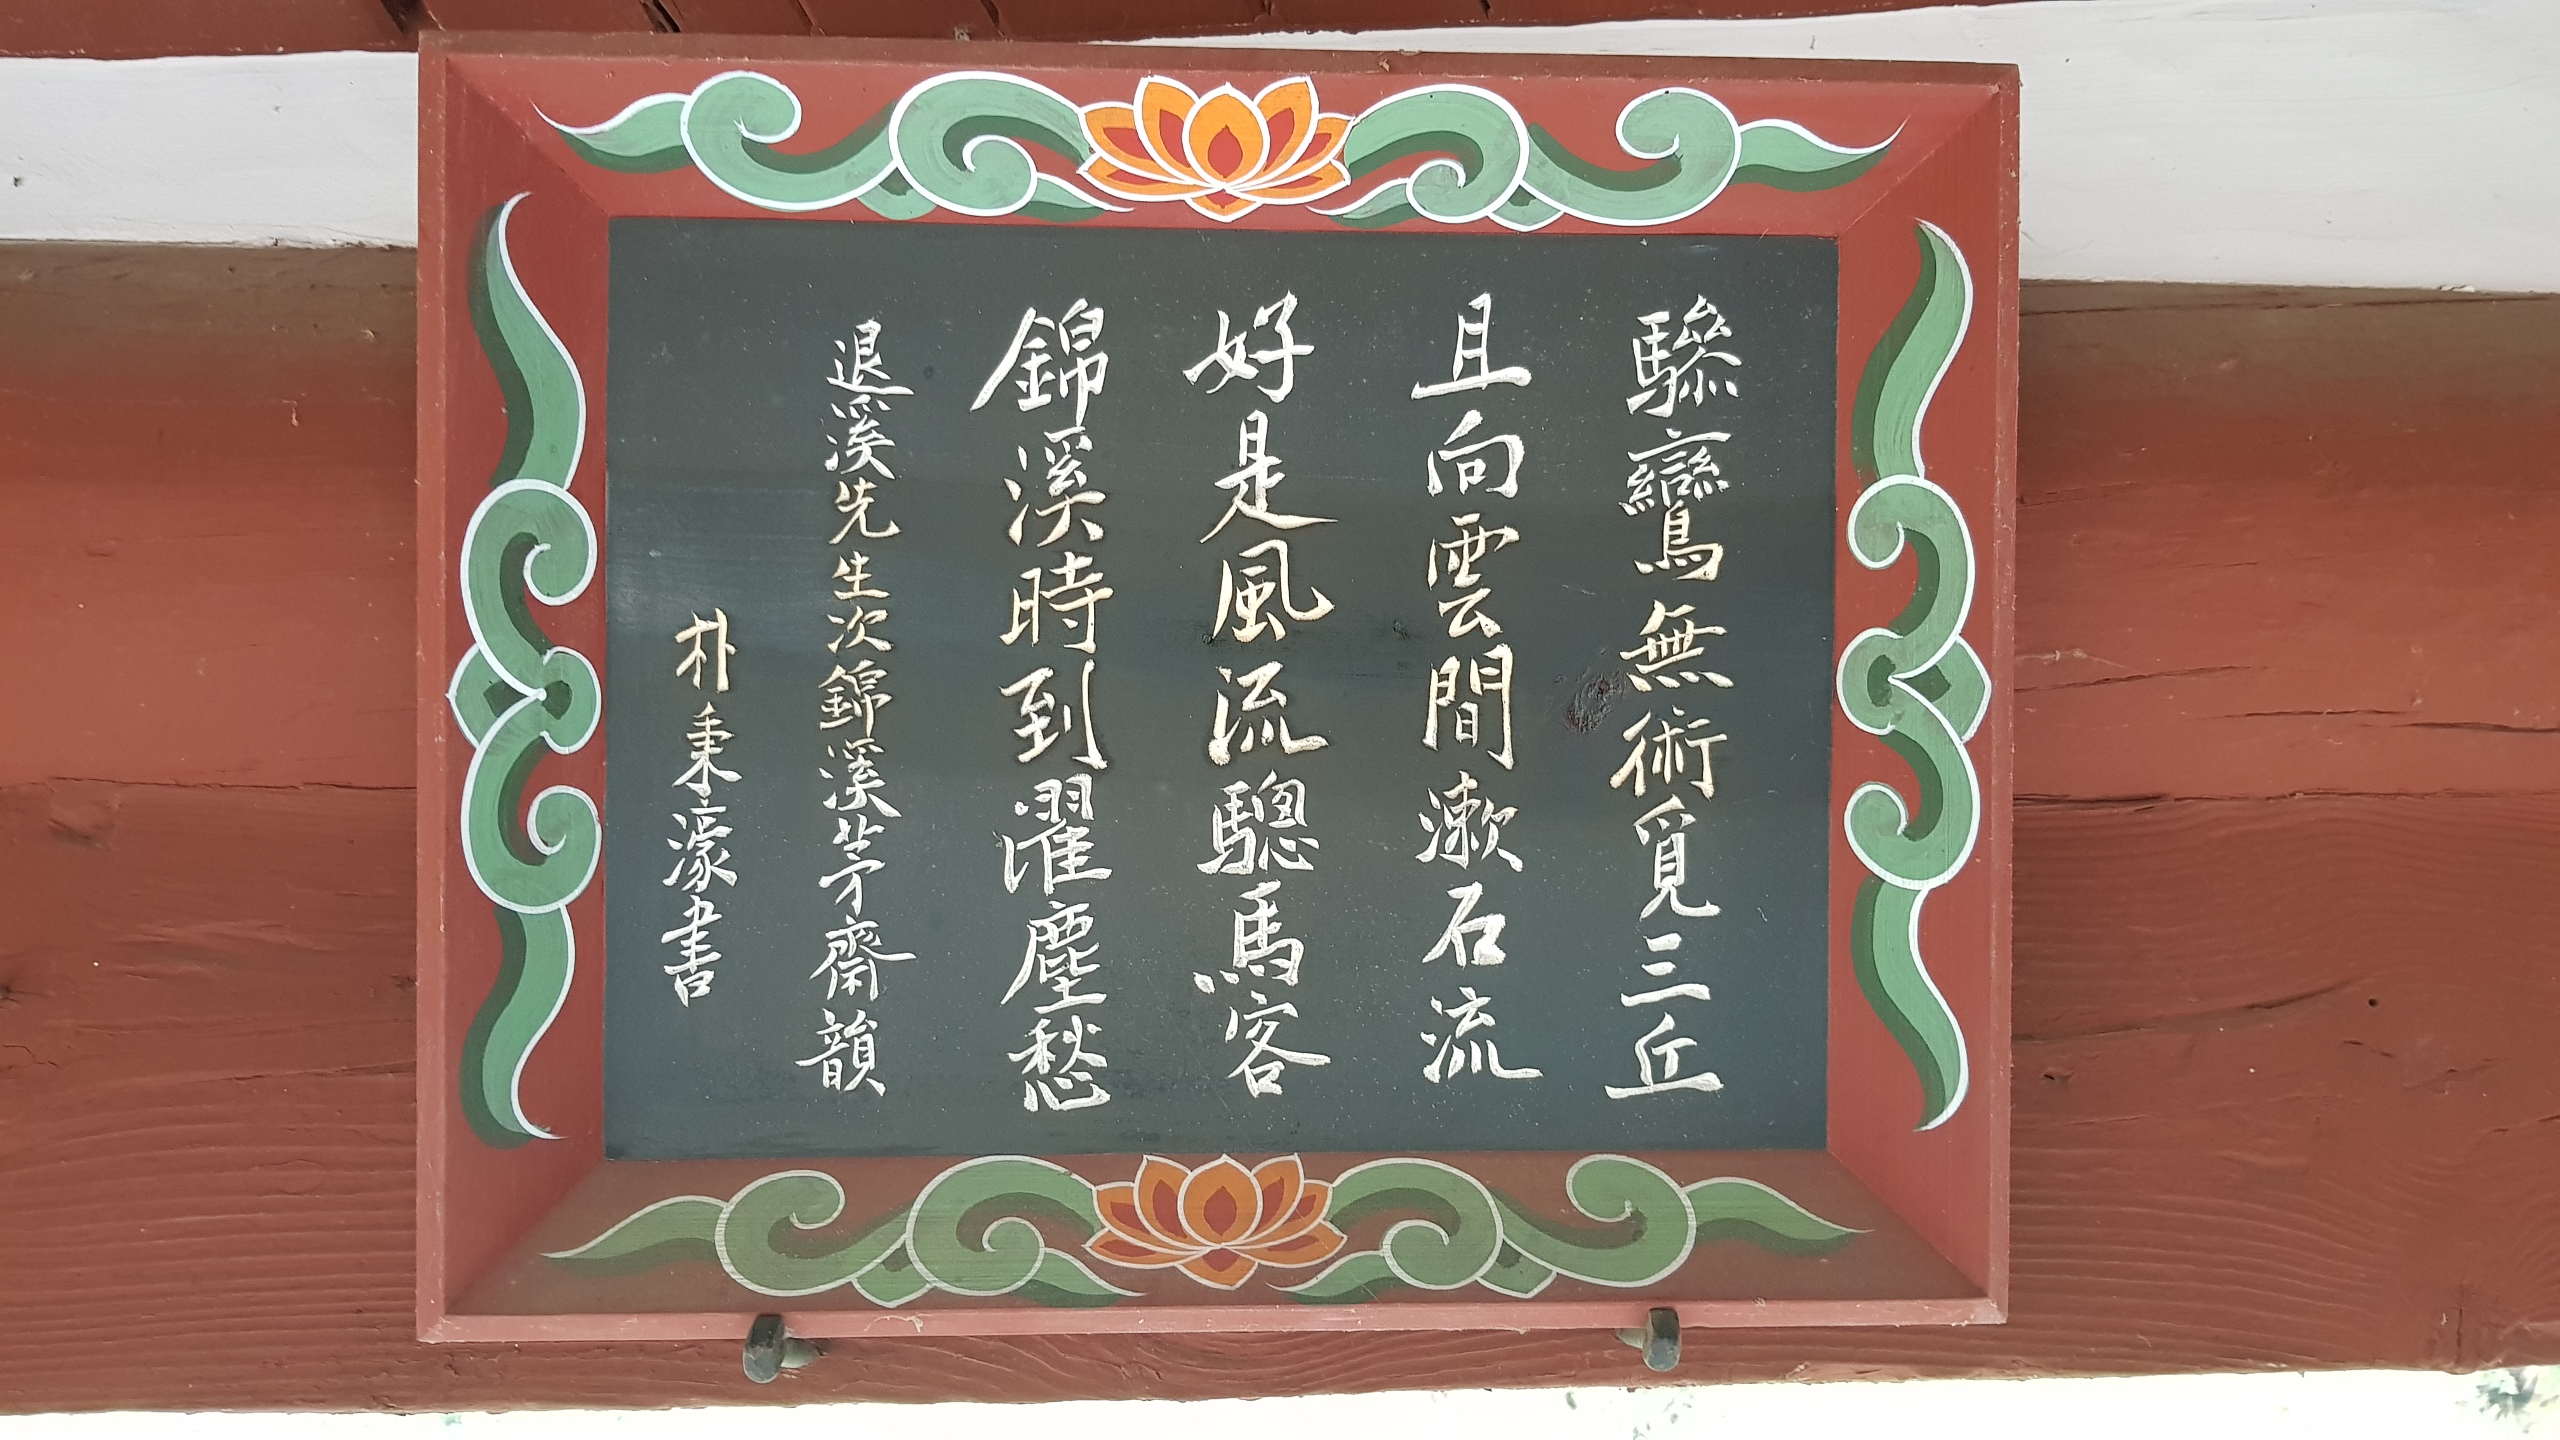 驂鸞無術覓三丘
且向雲間漱石流
好是風流驄馬客
錦溪時到濯塵愁
退溪先生次錦溪茅齋韻
朴秉濠書